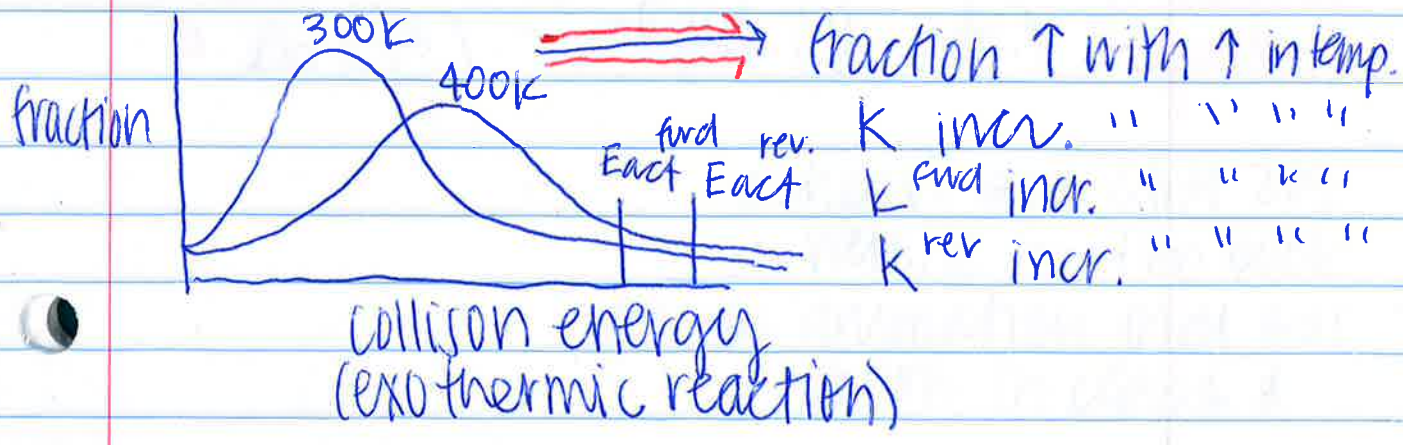 300K
400K
fraction
fwd rev.
Eact Eact
collison energy
(exothermic reaction)
fraction ↑ with ↑ in temp.
K incr. " " " "
k fwd incr. " " " "
k rev incr. " " " "